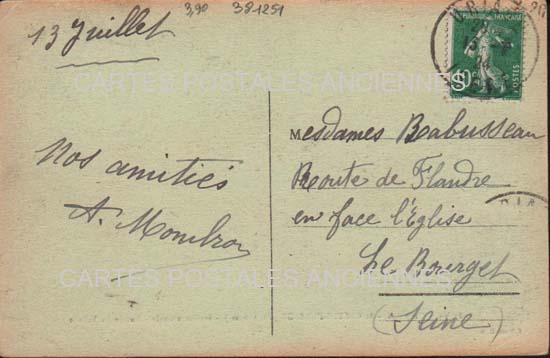 3,90 381251
13 Juillet
Nos amitiés
A.
RÉPUBLIQUE FRANÇAISE
10c
POSTES
Mesdames Rabusseau
Route de Flandre
en face l'Eglise
Le Bourget
(Seine)
CARTES POSTALES ANCIENNES
CARTES POSTALES ANCIENNES